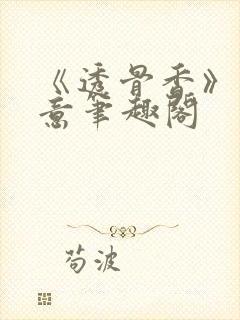 《透骨香》
意笔趣阁
苟波